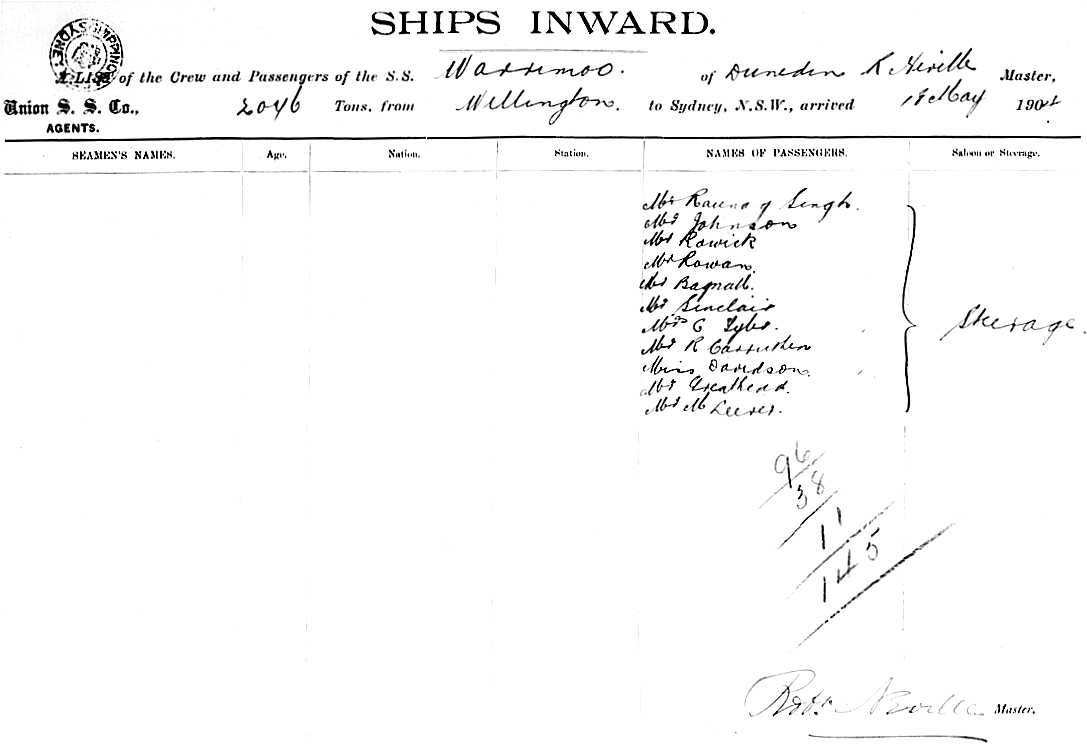 SHIPS INWARD.
SHIPPING SYDNEY
A LIST of the Crew and Passengers of the S.S. Warrimoo. of Dunedin R Neville Master,
Union S. S. Co., 2046 Tons, from Wellington. to Sydney, N.S.W., arrived 19 May 1904
AGENTS.
SEAMEN'S NAMES. Age. Nation. Station. NAMES OF PASSENGERS. Saloon or Steerage.
Mr Singh.
Mr Johnson
Mr Rowick
Mr Rowan.
Mr Bagnall.
Mr Sinclair
Mrs C Tyler. Steerage.
Mr R Carruthers
Miss Davidson.
Mr Greathead.
Mr M
96
38
11
145
Robt Neville Master.